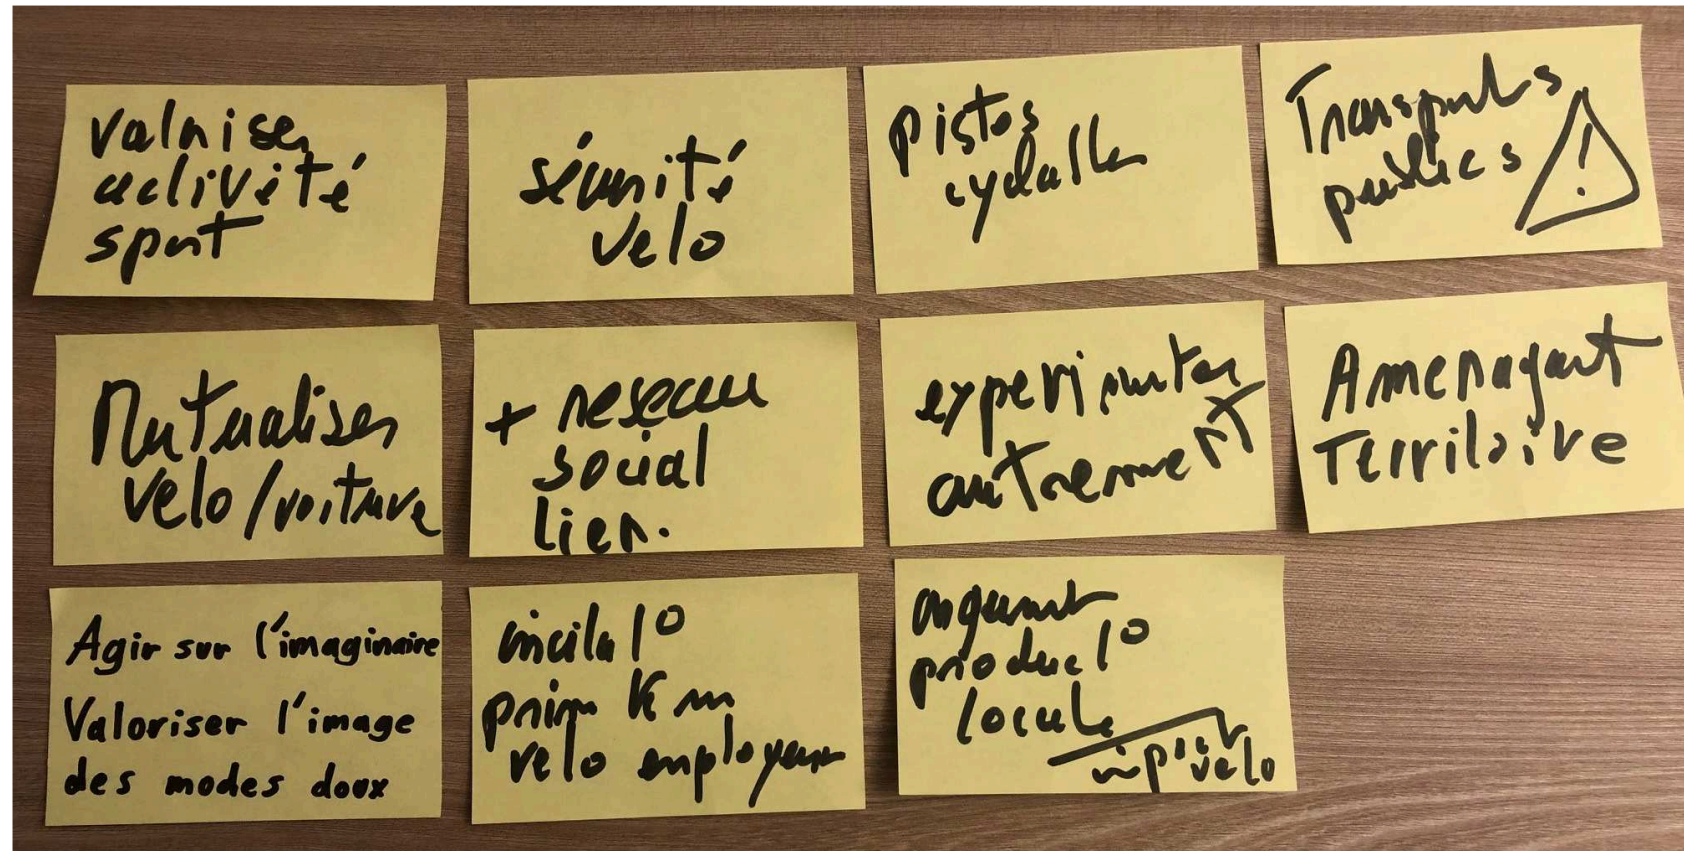 valoriser
activité
sport
sécurité
velo
pistes
cyclables
Transports
publics
!
Mutualiser
velo/voiture
+ reseau
social
lien.
experimenter
autrement
Amenagant
Territoire
Agir sur l'imaginaire
Valoriser l'image
des modes doux
incitat°
prime Km
velo employeur
product°
locale
velo